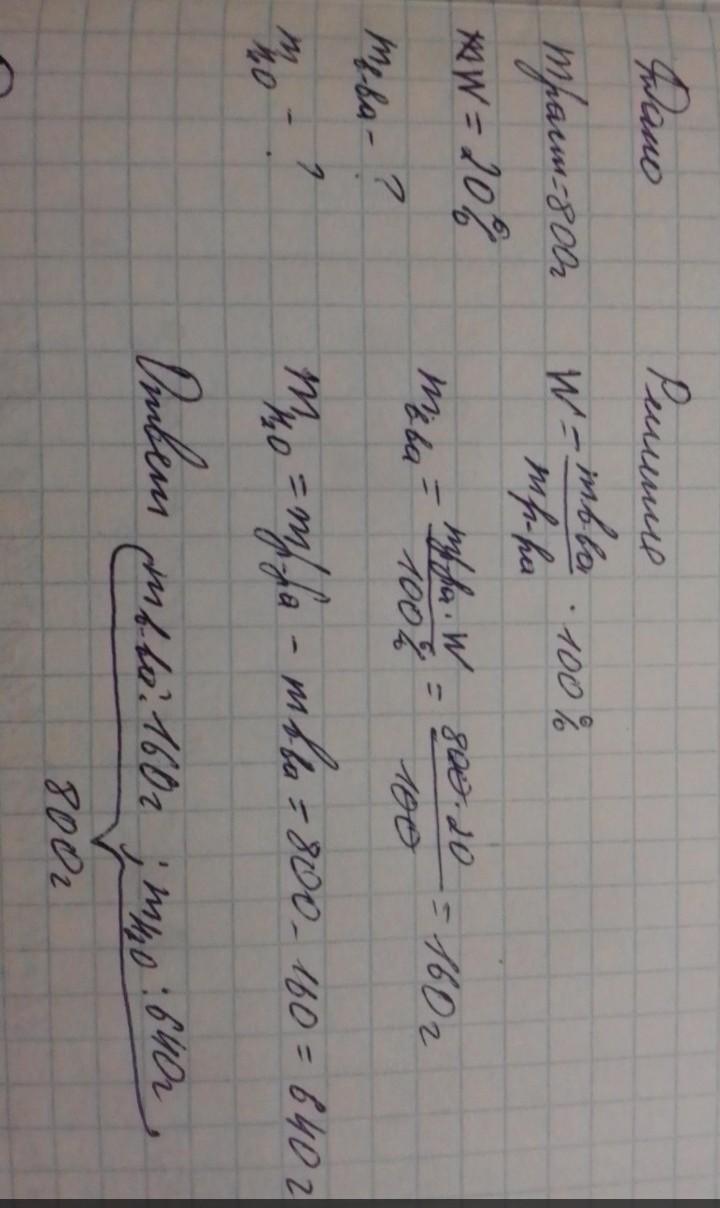 Дано
mраств=800г
W = 20%
mв-ва - ?
mH₂O - ?
Решение
W = mв-ва / mр-ра · 100%
mв-ва = mр-ра · W / 100% = 800 · 20 / 100 = 160 г
mH₂O = mр-ра - mв-ва = 800 - 160 = 640 г
Ответ mв-ва: 160г ; mH₂O: 640г
800г